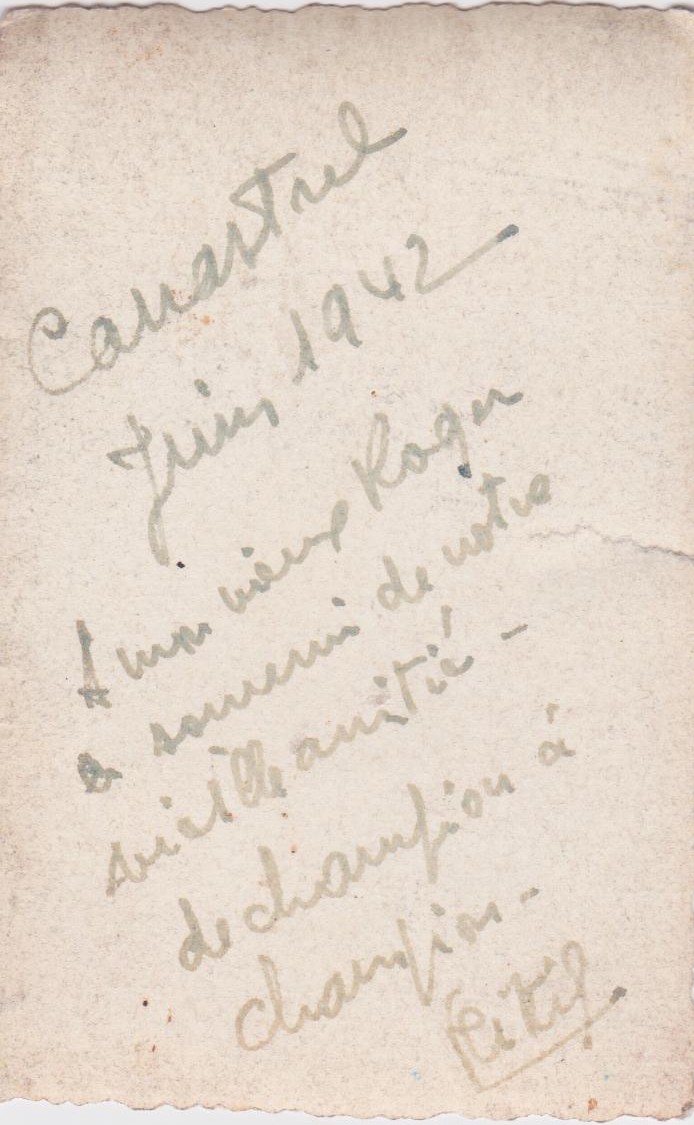 Juin 1942
A mon vieux Roger
en souvenir de notre
vieille amitié -
de champion à
champion -